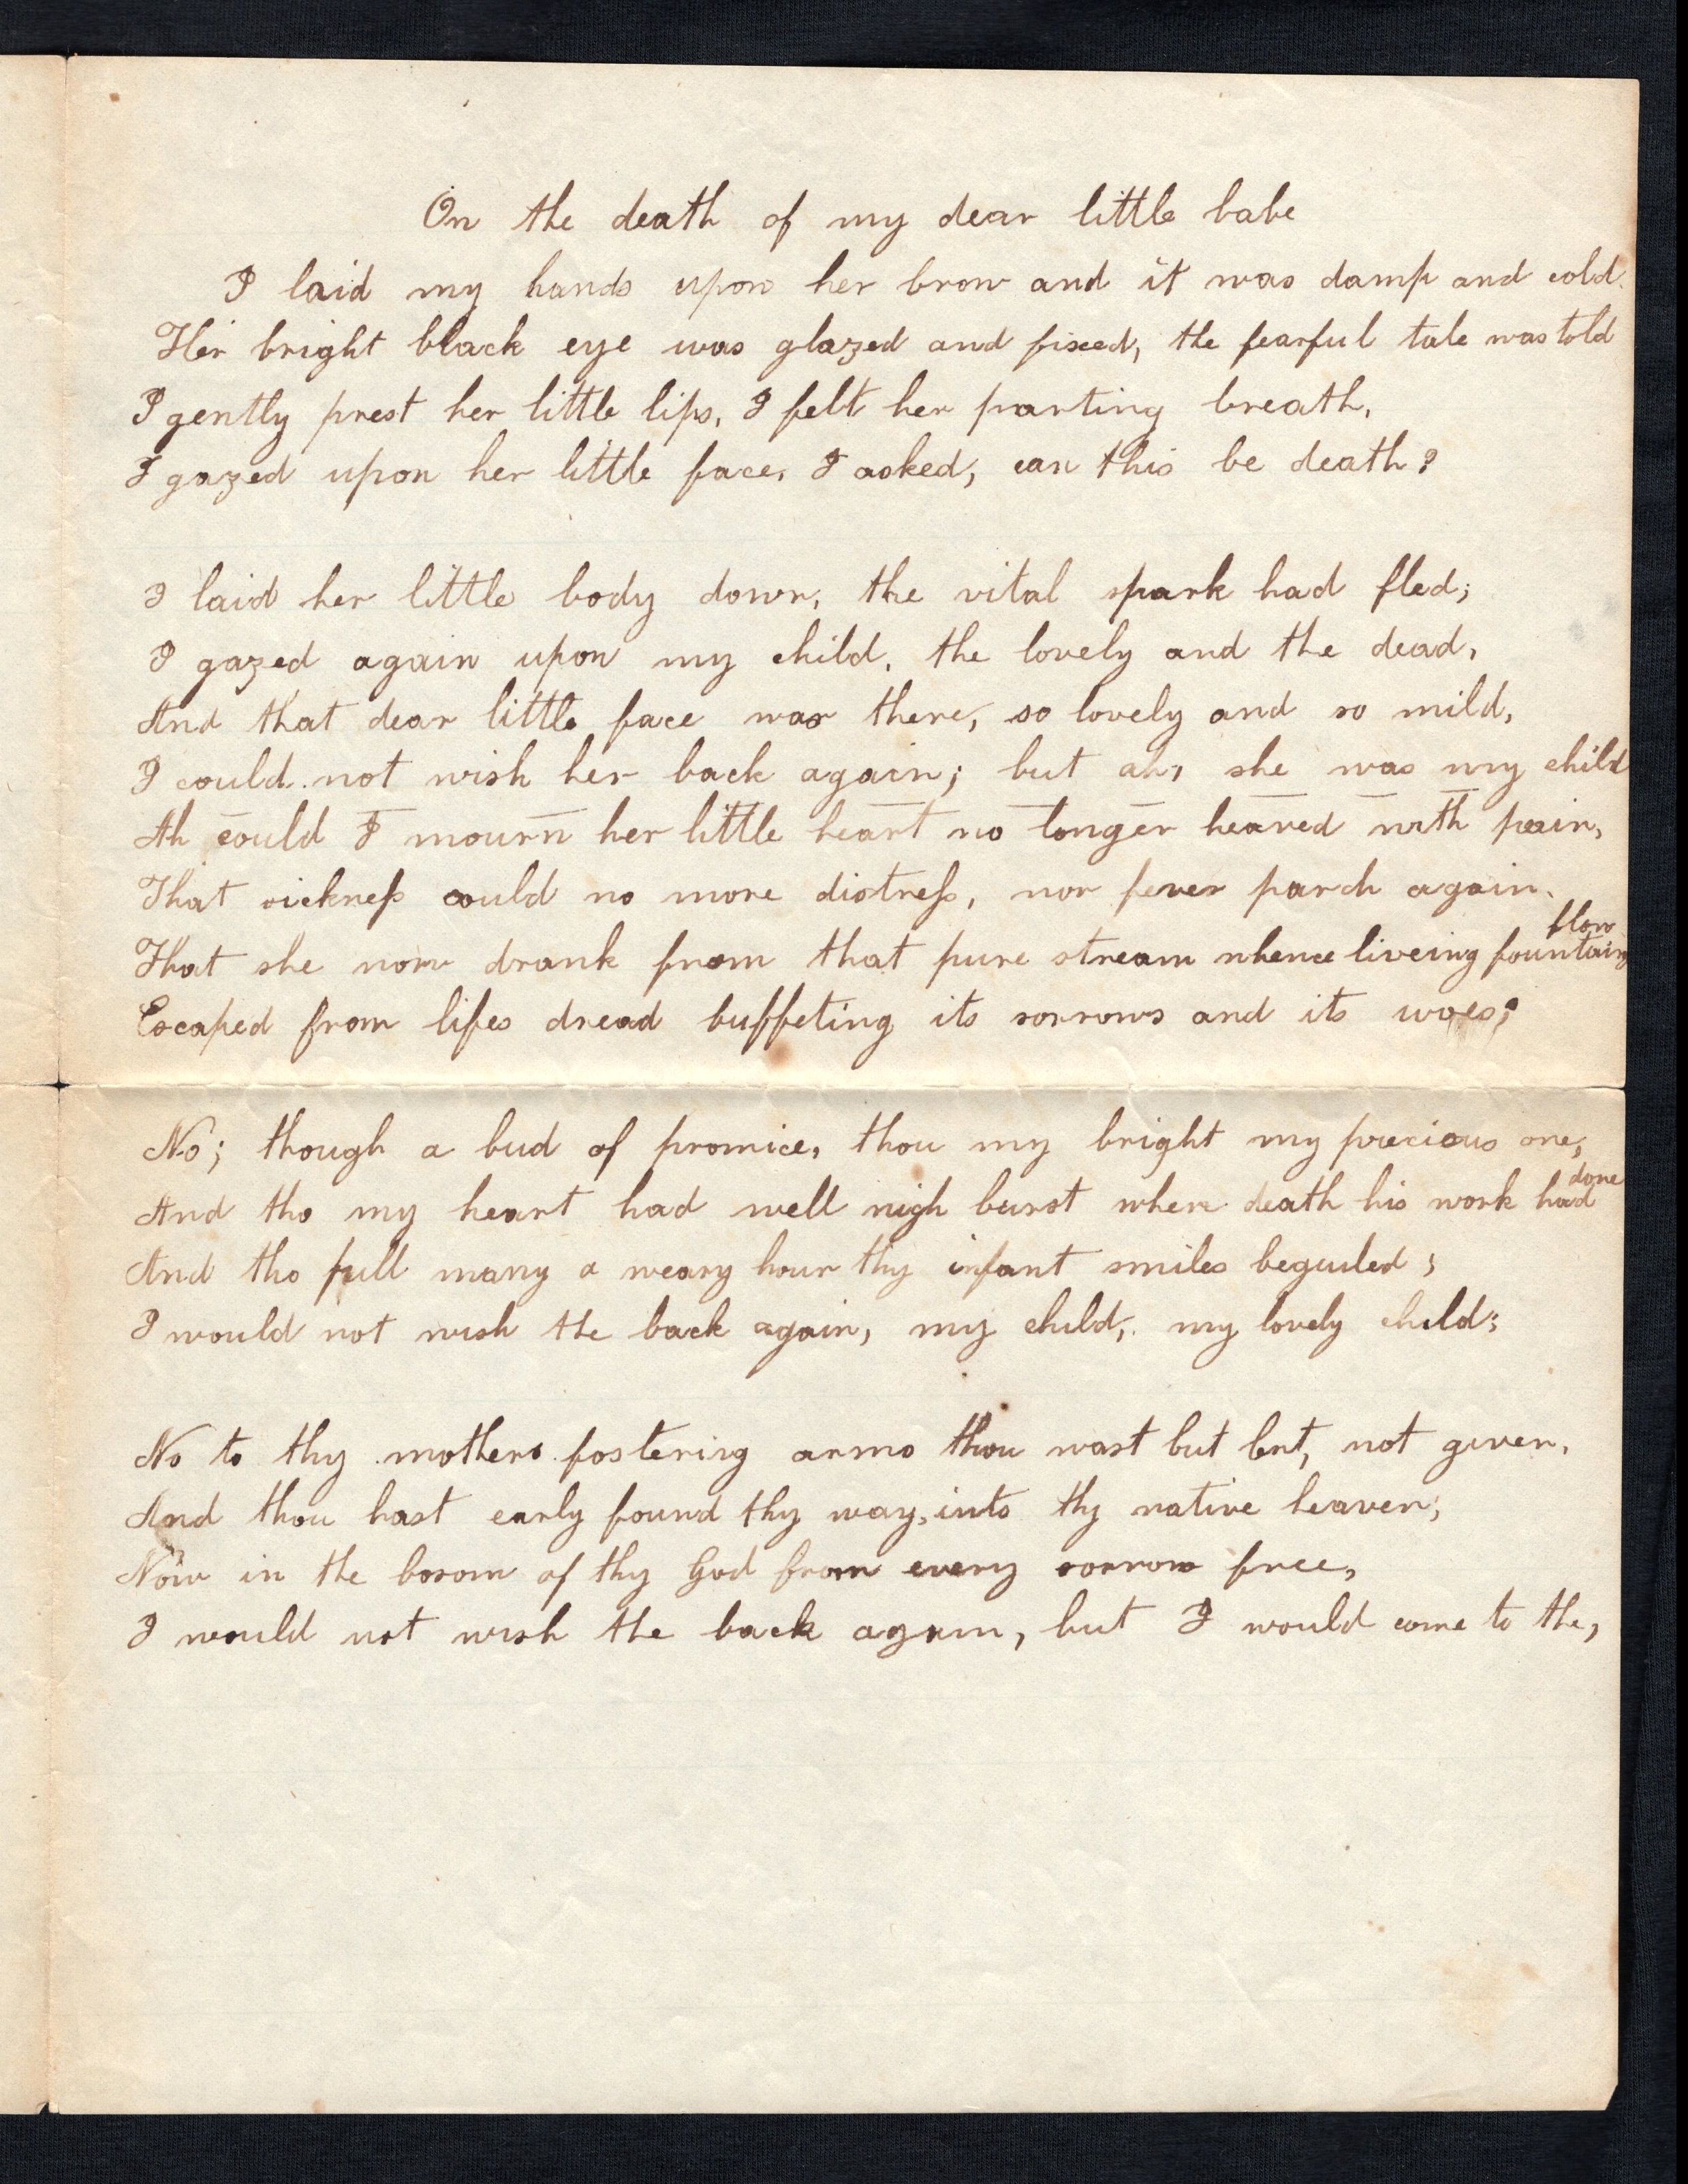 On the death of my dear little babe
I laid my hands upon her brow and it was damp and cold.
Her bright black eye was glazed and fixed, the fearful tale was told
I gently prest her little lips, I felt her parting breath,
I gazed upon her little face, I asked, can this be death?
I laid her little body down, the vital spark had fled;
I gazed again upon my child, the lovely and the dead,
And that dear little face was there, so lovely and so mild,
I could not wish her back again; but ah, she was my child
Ah could I mourn her little heart no longer heaved with pain,
That sickneſs could no more distreſs, nor fever parch again.
That she now drank from that pure stream whence liveing fountains flow
Escaped from lifes dread buffeting its sorrows and its woes?
No; though a bud of promice, thou my bright my precious one,
And tho my heart had well nigh burst when death his work had done
And tho full many a weary hour thy infant smiles beguiled;
I would not wish the back again, my child, my lovely child;
No to thy mothers fostering arms thou wast but lent, not given,
And thou hast early found thy way, into thy native heaven;
Now in the bosom of thy God from every sorrow free,
I would not wish the back again, but I would come to the,